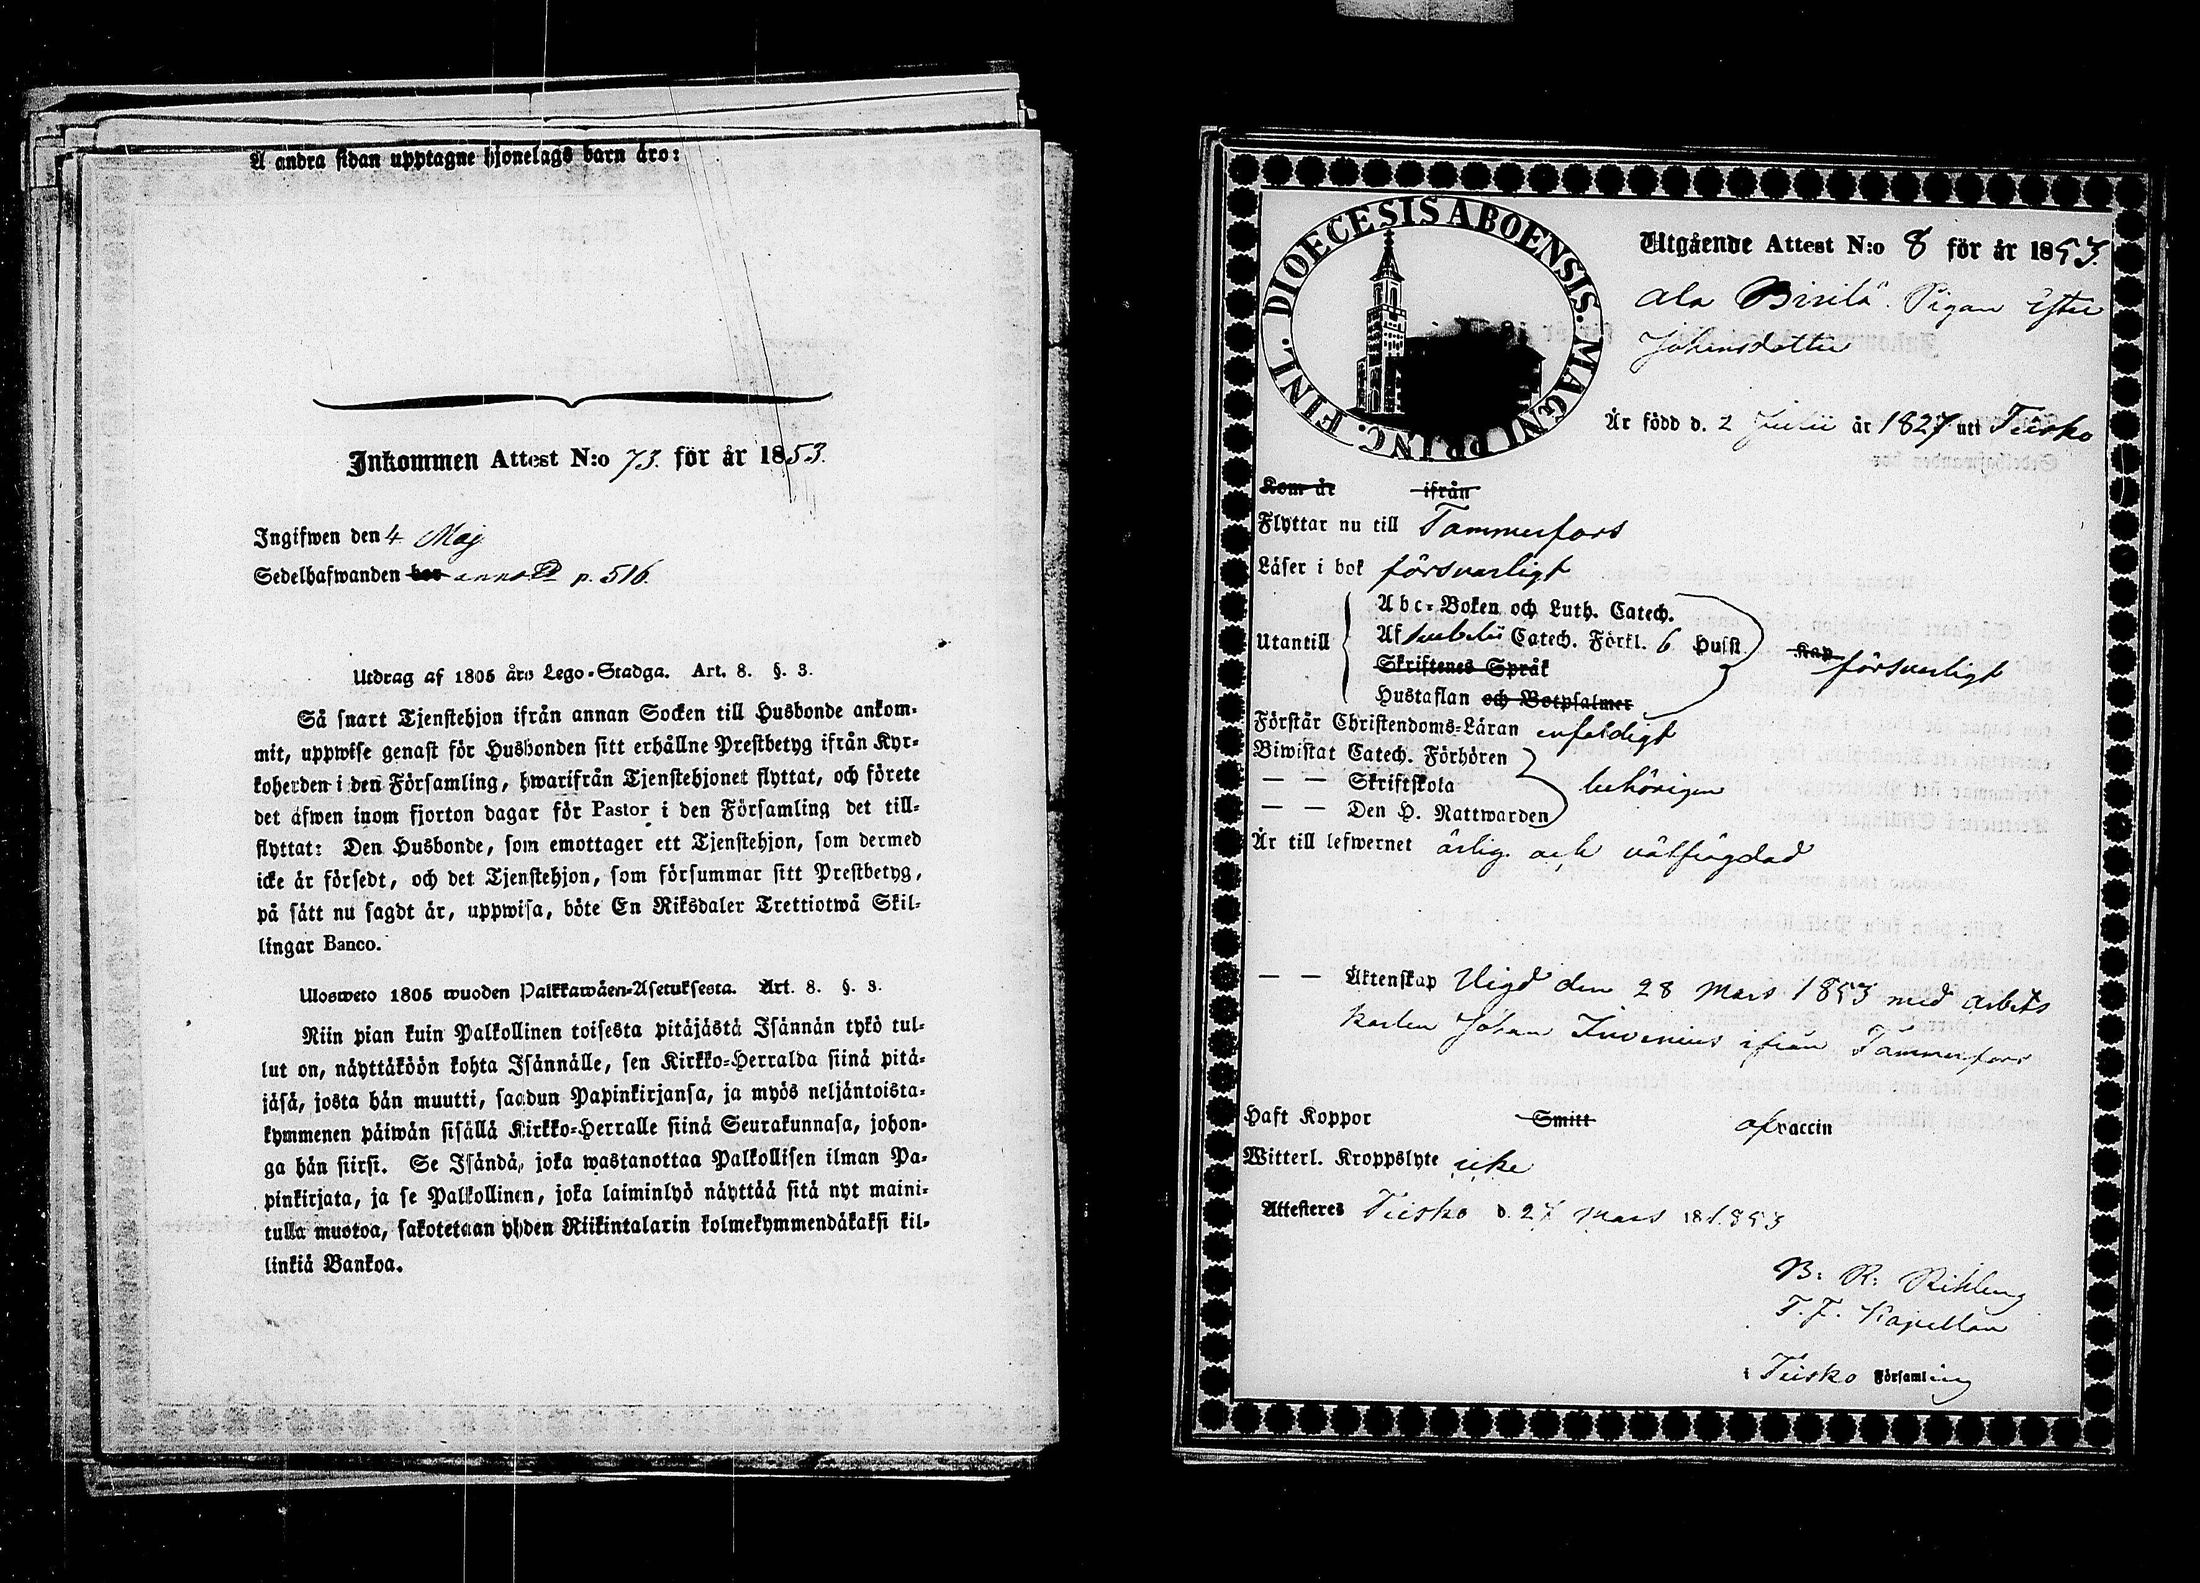 A andra sidan upptagne hjonelags barn äro:
Inkommen Attest N:o 73. för år 1853.
Ingifwen den 4 Maj
Sedelhafwanden bor p. 516.
Utdrag af 1805 års Lego-Stadga. Art. 8. §. 3.
Så snart Tjenstehjon ifrån annan Socken till Husbonde ankom-
mit, uppwise genast för Husbonden sitt erhållne Prestbetyg ifrån Kyr-
koherden i den Församling, hwarifrån Tjenstehjonet flyttat, och förete
det äfwen inom fjorton dagar för Pastor i den Församling det till-
flyttat: Den Husbonde, som emottager ett Tjenstehjon, som dermed
icke är försedt, och det Tjenstehjon, som försummar sitt Prestbetyg,
på sätt nu sagdt är, uppwisa, böte En Riksdaler Trettiotwå Skil-
lingar Banco.
Ulosweto 1805 wuoden Palkkawäen-Asetuksesta. Art. 8. §. 3.
Niin pian kuin Palkollinen toisesta pitäjästä Isännän tykö tul-
lut on, näyttäköön kohta Isännälle, sen Kirkko-Herralda siinä pitä-
jäsä, josta hän muutti, saadun Papinkirjansa, ja myös neljäntoista-
kymmenen päiwän sisällä Kirkko-Herralle siinä Seurakunnasa, johon-
ga hän siirsi. Se Isändä, joka wastanottaa Palkollisen ilman Pa-
pinkirjata, ja se Palkollinen, joka laiminlyö näyttää sitä nyt maini-
tulla muotoa, sakotetaan yhden Riikintalarin kolmekymmendäkaksi kil-
linkiä Bankoa.
DIOECESIS ABOENSIS. MAGNI PRINC. FINL.
Utgående Attest N:o 8 för år 1853.
Ala Pigan Ester
Johansdotter
Är född d. 2 Julii år 1827 uti Teisko
Kom år ifrån
Flyttar nu till Tammerfors
Läser i bok försvarligt
Utantill
Abc-Boken och Luth. Catech.
Af Catech. Förkl. 6 Husst. Kap försvarligt
Skriftenes Språk
Hustaflan och Botpsalmer
Förstår Christendoms-Läran enfaldigt
Biwistat Catech. Förhören
— — Skriftskola behörigen
— — Den H. Nattwarden
Är till lefwernet ärlig och välfrägdad
— — Äktenskap Vigd den 28 Mars 1853 med arbets
karlen Johan ifrån Tammerfors
Haft Koppor Smitt af vaccin
Witterl. Kroppslyte icke
Attesteres Teisko d. 27 Mars 18 1853
B: R:
T. F. Kapellan
i Teisko Församling